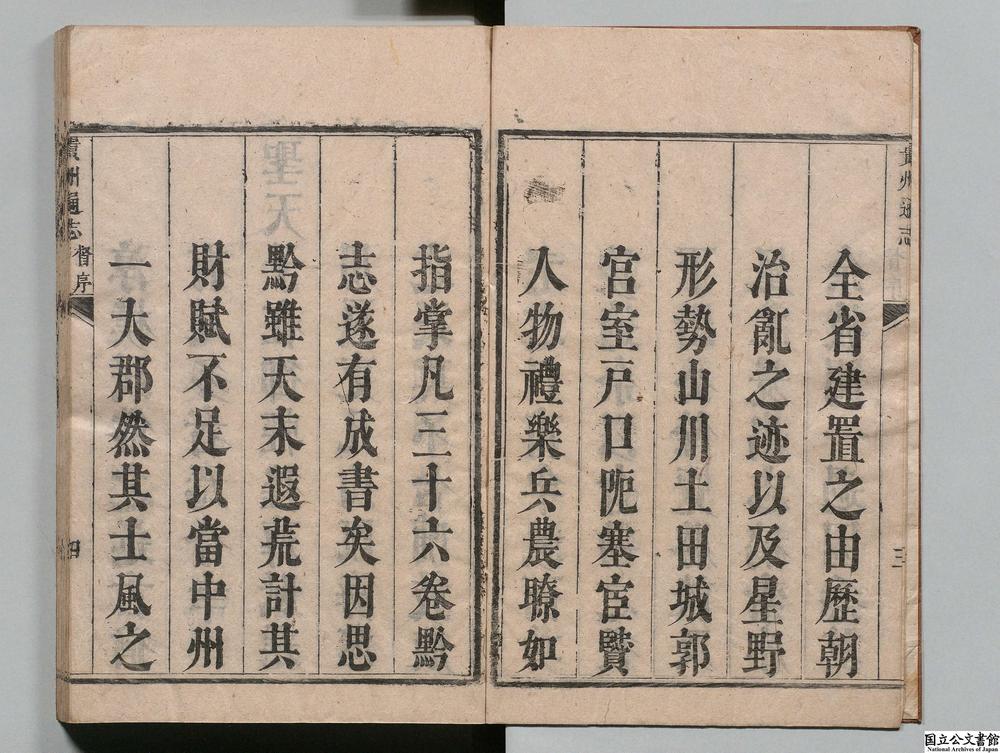 貴州通志
序
三
全省建置之由歷朝
治亂之迹以及星野
形勢山川土田城郭
宫室戸口阨塞宦贒
人物禮樂兵農瞭如
指掌凡三十六卷黔
志遂有成書矣因思
黔雖天末遐荒計其
財賦不足以當中州
一大郡然其士風之
貴州通志
序
四
国立公文書館
National Archives of Japan